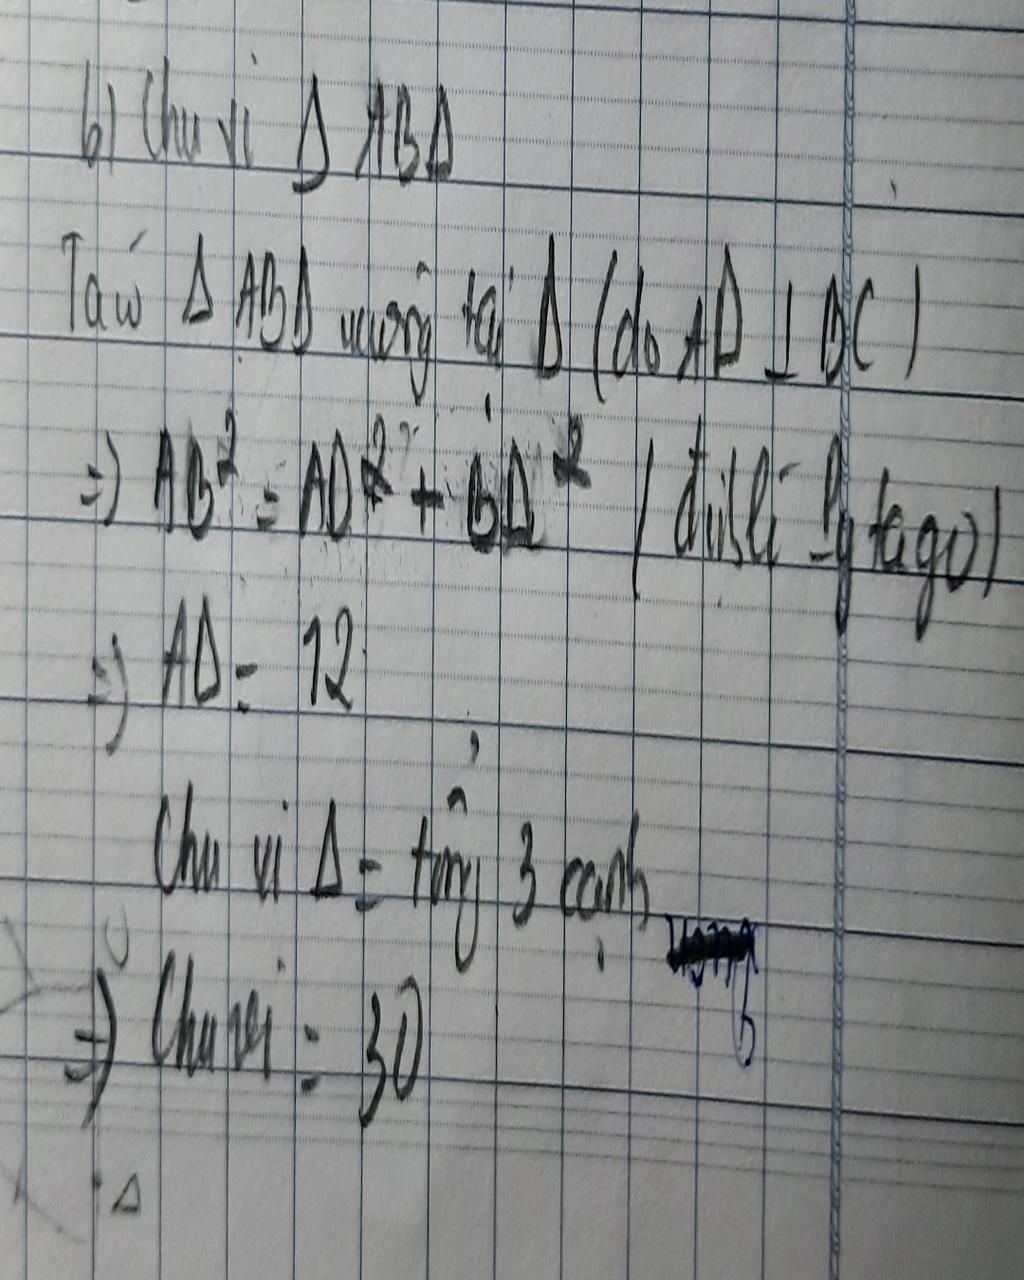 b) Chu vi Δ ABD
Ta có Δ ABD vuông tại D (do AD ⊥ DC)
=) AB² = AD² + BD² (định lí Pytago)
=) AD = 12
Chu vi Δ = tổng 3 cạnh
=) Chu vi = 30